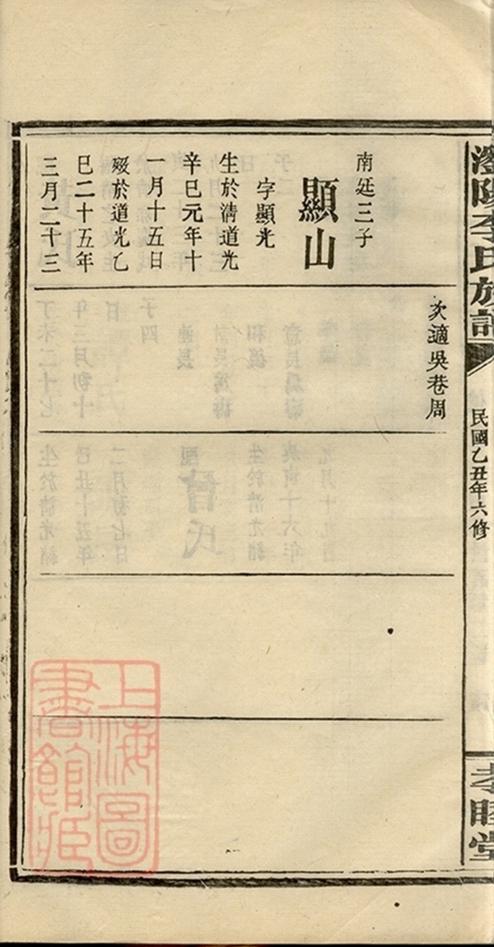 陽李氏族譜
民國乙丑年六修
孝睦堂
次適吳巷周
南廷三子
顯山
字顯光
生於清道光
辛巳元年十
一月十五日
歿於道光乙
巳二十五年
三月二十三
上海圖
書館藏